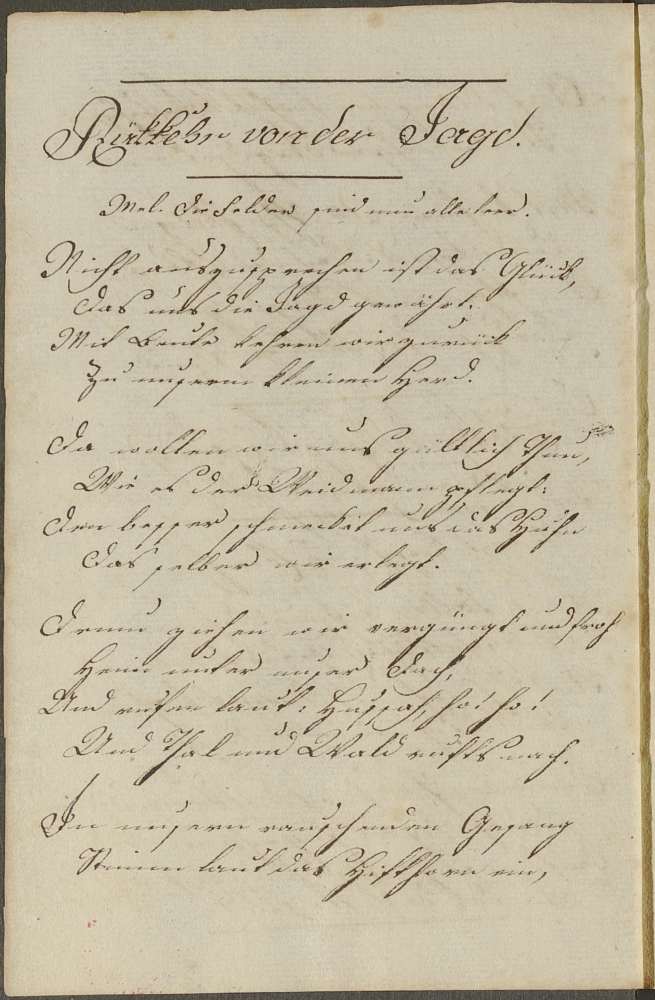 Rükkehr von der Jagd.
Mel. Die Felder sind nun alle leer.
Nicht auszusprechen ist das Glück,
Das uns die Jagd gewährt.
Mit Beute kehren wir zurück
Zu unserm kleinen Herd.
Da wollen wir uns gütlich Thun,
Wie es der Weidmann pflegt:
Den besser schmecket uns das Huhn
Das selber wir erlegt.
Drum ziehen wir vergüngt und froh
Heim unter unser Dach,
Und rufen laut: Hussah, ho! ho!
Und Thal und Wald rufts nach.
In unsern rauschenden Gesang
Stimm laut das Hifthorn ein,